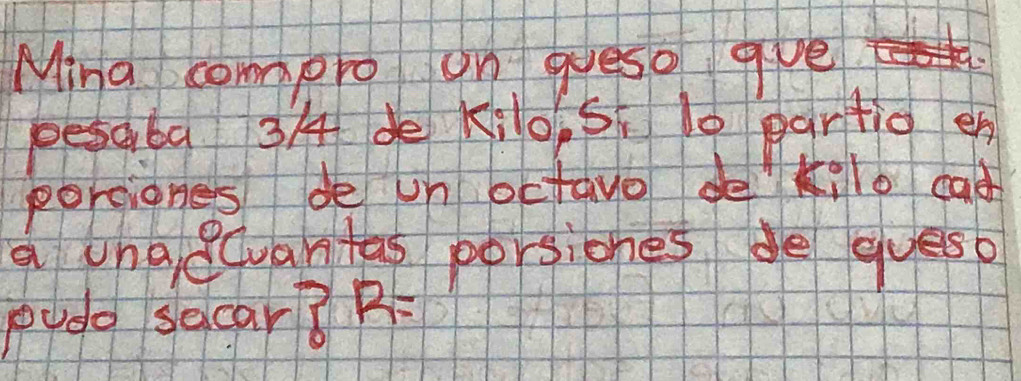 Mina compro un queso que
pesaba 3/4 de Kilo, Si lo partio en
porciones de un octavo de Kilo cad
a una, ¿Cuantas porsiones de queso
pudo sacar? R=